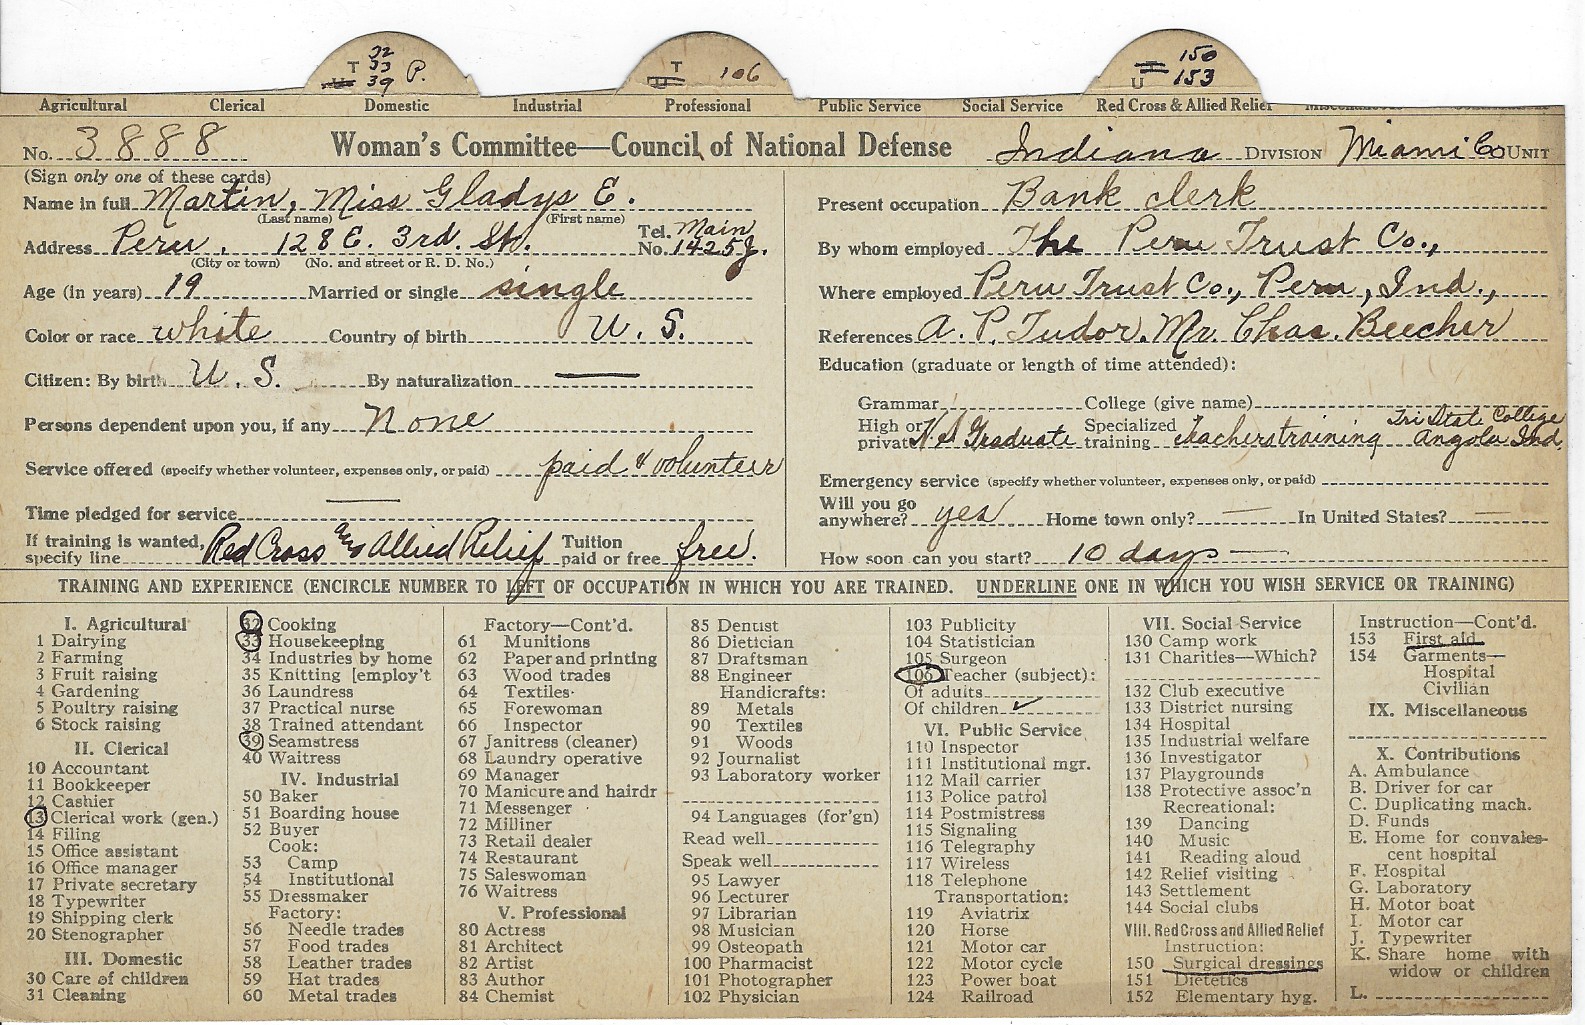 32
T 33 P.
U 39
T
U 106
I 150
U 153
Agricultural Clerical Domestic Industrial Professional Public Service Social Service Red Cross & Allied Relief
No. 3888 Woman's Committee—Council of National Defense Indiana DIVISION Miami Co UNIT
(Sign only one of these cards)
Name in full Martin, Miss Gladys E.
(Last name) (First name)
Address Peru, 128 E. 3rd. St. Tel. No. Main 1425J.
(City or town) (No. and street or R. D. No.)
Age (in years) 19 Married or single single
Color or race white Country of birth U. S.
Citizen: By birth U. S. By naturalization —
Persons dependent upon you, if any None
Service offered (specify whether volunteer, expenses only, or paid) paid & volunteer
Time pledged for service —
If training is wanted, specify line Red Cross and Allied Relief Tuition paid or free free.
Present occupation Bank clerk
By whom employed The Peru Trust Co.,
Where employed Peru Trust Co., Peru, Ind.,
References A. P. Tudor. Mr. Chas. Beecher
Education (graduate or length of time attended):
Grammar College (give name)
High or private H. S Graduate Specialized training teacherstraining Tri State College Angola Ind.
Emergency service (specify whether volunteer, expenses only, or paid)
Will you go anywhere? yes Home town only? — In United States? —
How soon can you start? 10 days —
TRAINING AND EXPERIENCE (ENCIRCLE NUMBER TO LEFT OF OCCUPATION IN WHICH YOU ARE TRAINED. UNDERLINE ONE IN WHICH YOU WISH SERVICE OR TRAINING)
I. Agricultural
1 Dairying
2 Farming
3 Fruit raising
4 Gardening
5 Poultry raising
6 Stock raising
II. Clerical
10 Accountant
11 Bookkeeper
12 Cashier
13 Clerical work (gen.)
14 Filing
15 Office assistant
16 Office manager
17 Private secretary
18 Typewriter
19 Shipping clerk
20 Stenographer
III. Domestic
30 Care of children
31 Cleaning
32 Cooking
33 Housekeeping
34 Industries by home
35 Knitting [employ't
36 Laundress
37 Practical nurse
38 Trained attendant
39 Seamstress
40 Waitress
IV. Industrial
50 Baker
51 Boarding house
52 Buyer
Cook:
53 Camp
54 Institutional
55 Dressmaker
Factory:
56 Needle trades
57 Food trades
58 Leather trades
59 Hat trades
60 Metal trades
Factory—Cont'd.
61 Munitions
62 Paper and printing
63 Wood trades
64 Textiles
65 Forewoman
66 Inspector
67 Janitress (cleaner)
68 Laundry operative
69 Manager
70 Manicure and hairdr
71 Messenger
72 Milliner
73 Retail dealer
74 Restaurant
75 Saleswoman
76 Waitress
V. Professional
80 Actress
81 Architect
82 Artist
83 Author
84 Chemist
85 Dentist
86 Dietician
87 Draftsman
88 Engineer
Handicrafts:
89 Metals
90 Textiles
91 Woods
92 Journalist
93 Laboratory worker
94 Languages (for'gn)
Read well
Speak well
95 Lawyer
96 Lecturer
97 Librarian
98 Musician
99 Osteopath
100 Pharmacist
101 Photographer
102 Physician
103 Publicity
104 Statistician
105 Surgeon
106 Teacher (subject):
Of adults
Of children ✓
VI. Public Service
110 Inspector
111 Institutional mgr.
112 Mail carrier
113 Police patrol
114 Postmistress
115 Signaling
116 Telegraphy
117 Wireless
118 Telephone
Transportation:
119 Aviatrix
120 Horse
121 Motor car
122 Motor cycle
123 Power boat
124 Railroad
VII. Social Service
130 Camp work
131 Charities—Which?
132 Club executive
133 District nursing
134 Hospital
135 Industrial welfare
136 Investigator
137 Playgrounds
138 Protective assoc'n
Recreational:
139 Dancing
140 Music
141 Reading aloud
142 Relief visiting
143 Settlement
144 Social clubs
VIII. Red Cross and Allied Relief
Instruction:
150 Surgical dressings
151 Dietetics
152 Elementary hyg.
Instruction—Cont'd.
153 First aid
154 Garments—
Hospital
Civilian
IX. Miscellaneous
X. Contributions
A. Ambulance
B. Driver for car
C. Duplicating mach.
D. Funds
E. Home for convales-
cent hospital
F. Hospital
G. Laboratory
H. Motor boat
I. Motor car
J. Typewriter
K. Share home with
widow or children
L.